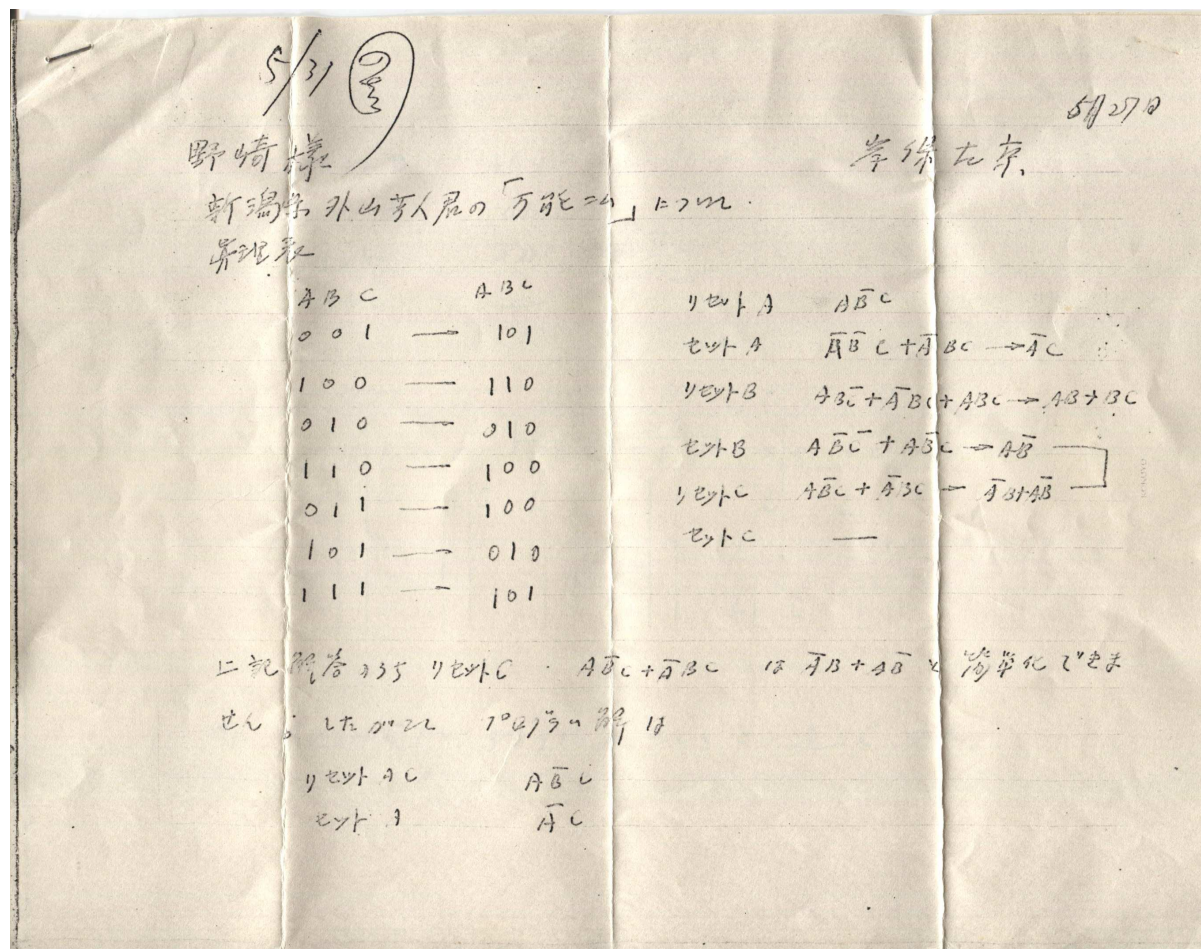 5/31
5月27日
野崎様
新潟県外山芳人君の「万能コム」について.
真理表
A B C A B C
0 0 1 — 1 0 1
1 0 0 — 1 1 0
0 1 0 — 0 1 0
1 1 0 — 1 0 0
0 1 1 — 1 0 0
1 0 1 — 0 1 0
1 1 1 — 1 0 1
リセットA AB̅C
セットA A̅B̅C + A̅BC → A̅C
リセットB ABC̅ + A̅BC + ABC → AB + BC
セットB AB̅C̅ + AB̅C → AB̅
リセットC AB̅C + A̅BC → A̅B + AB̅
セットC —
上記解答のうち リセットC AB̅C + A̅BC は A̅B + AB̅ と簡単化できま
せん; したがって プログラムの解は
リセット A C AB̅C
セット A A̅C